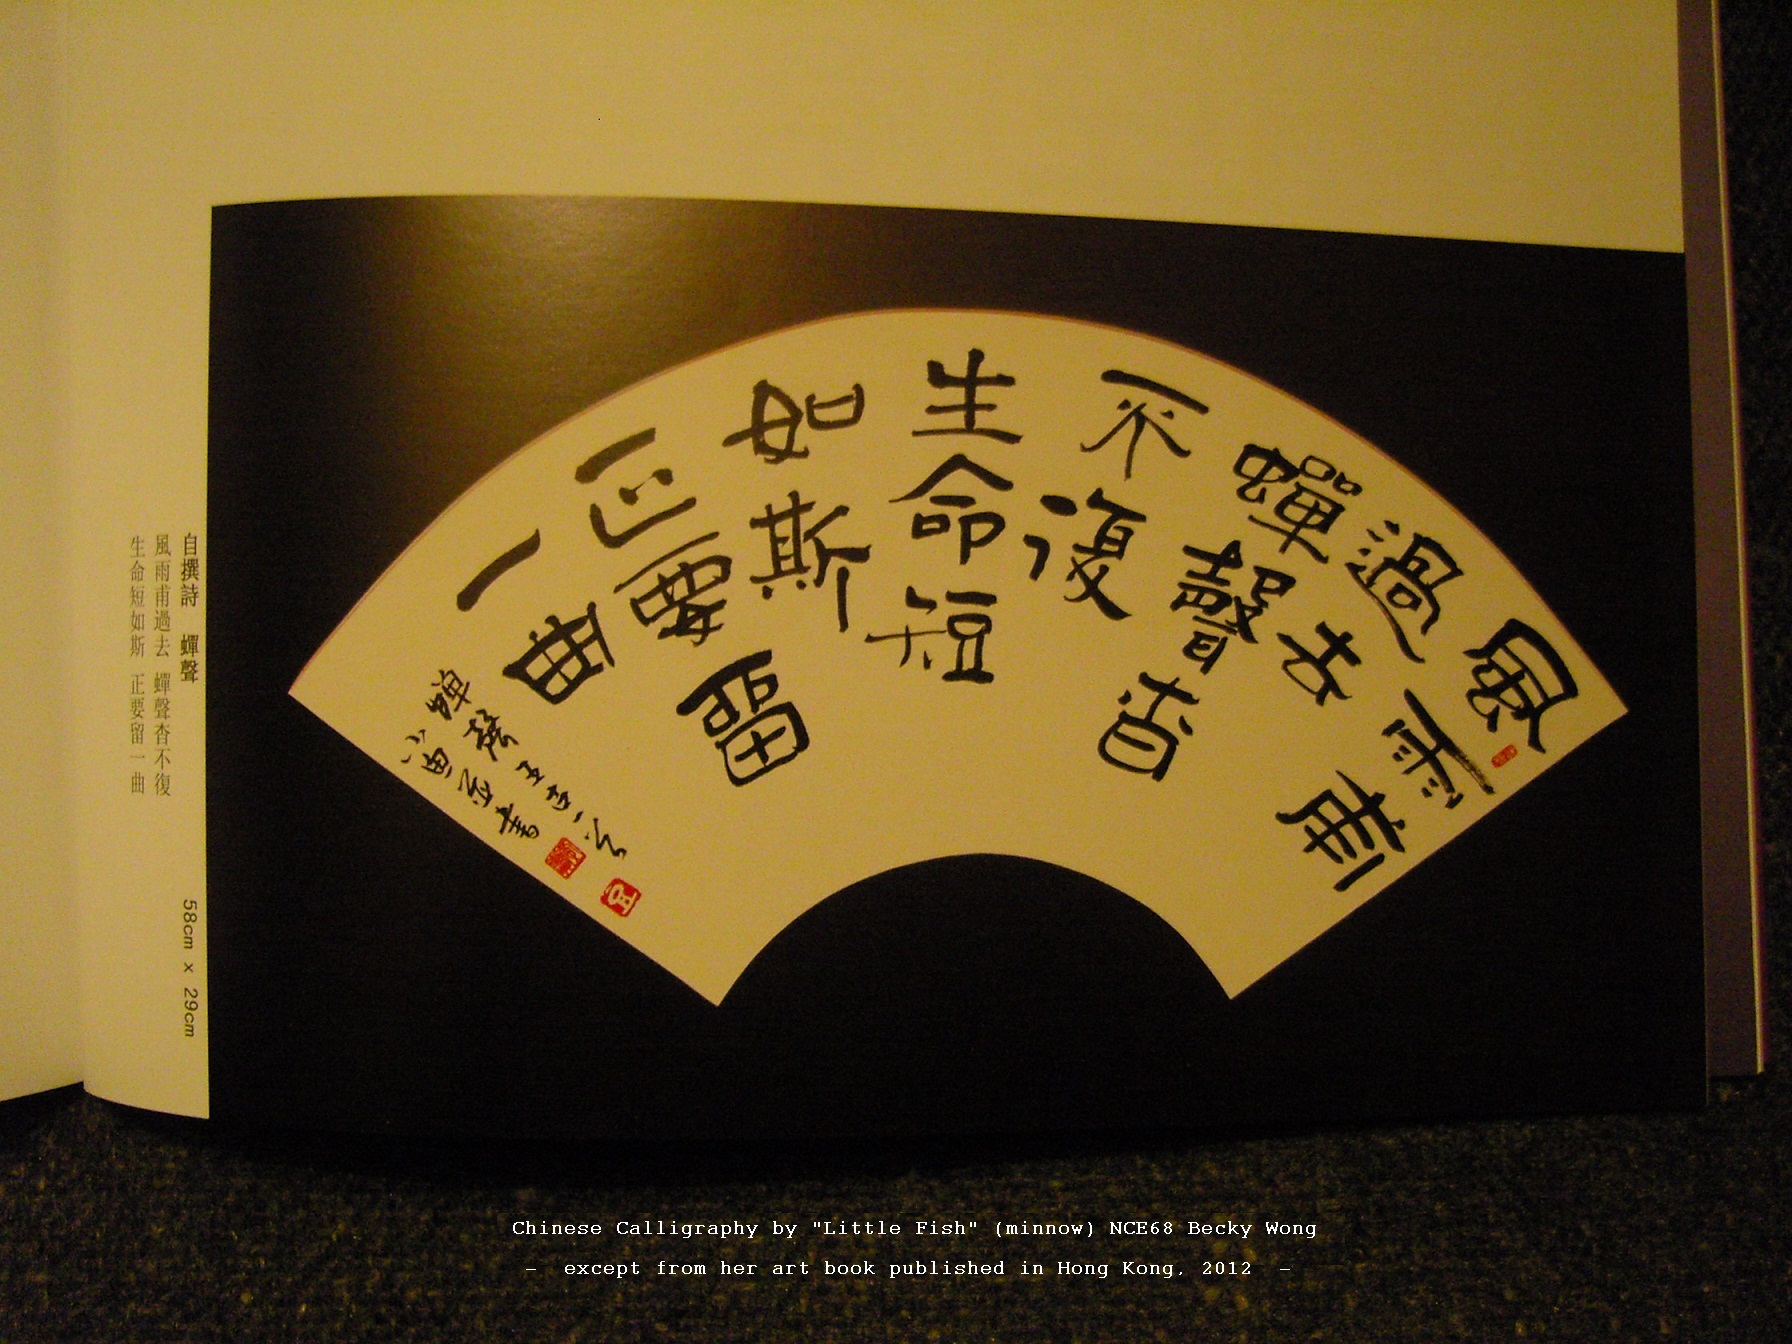 風雨甫
過去
蟬聲杳
不復
生命短
如斯
正要留
一曲
蟬聲
小
書
自撰詩 蟬聲
風雨甫過去 蟬聲杳不復
生命短如斯 正要留一曲
58cm x 29cm
Chinese Calligraphy by "Little Fish" (minnow) NCE68 Becky Wong
- except from her art book published in Hong Kong, 2012 -